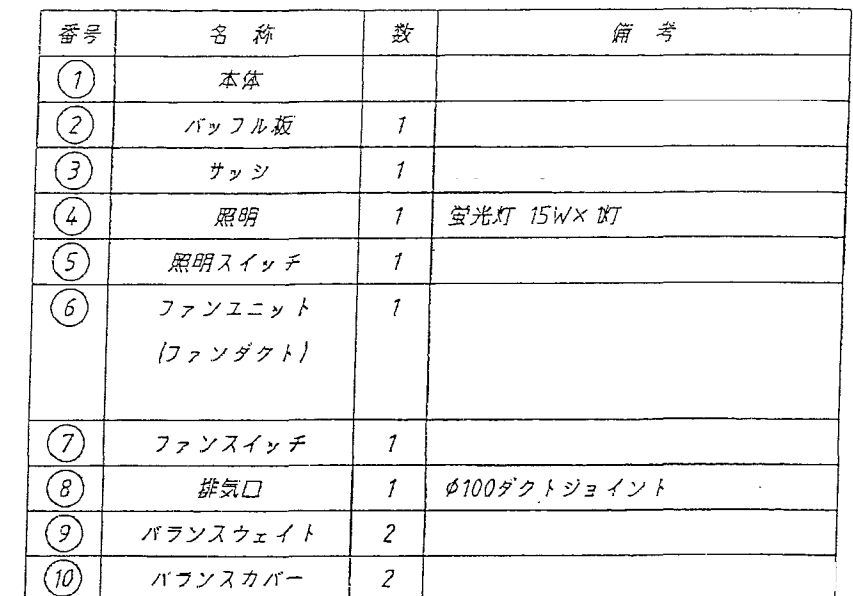 番号 名称 数 備考
① 本体
② バッフル板 1
③ サッシ 1
④ 照明 1 蛍光灯 15W×1灯
⑤ 照明スイッチ 1
⑥ ファンユニット 1
(ファンダクト)
⑦ ファンスイッチ 1
⑧ 排気口 1 φ100ダクトジョイント
⑨ バランスウェイト 2
⑩ バランスカバー 2